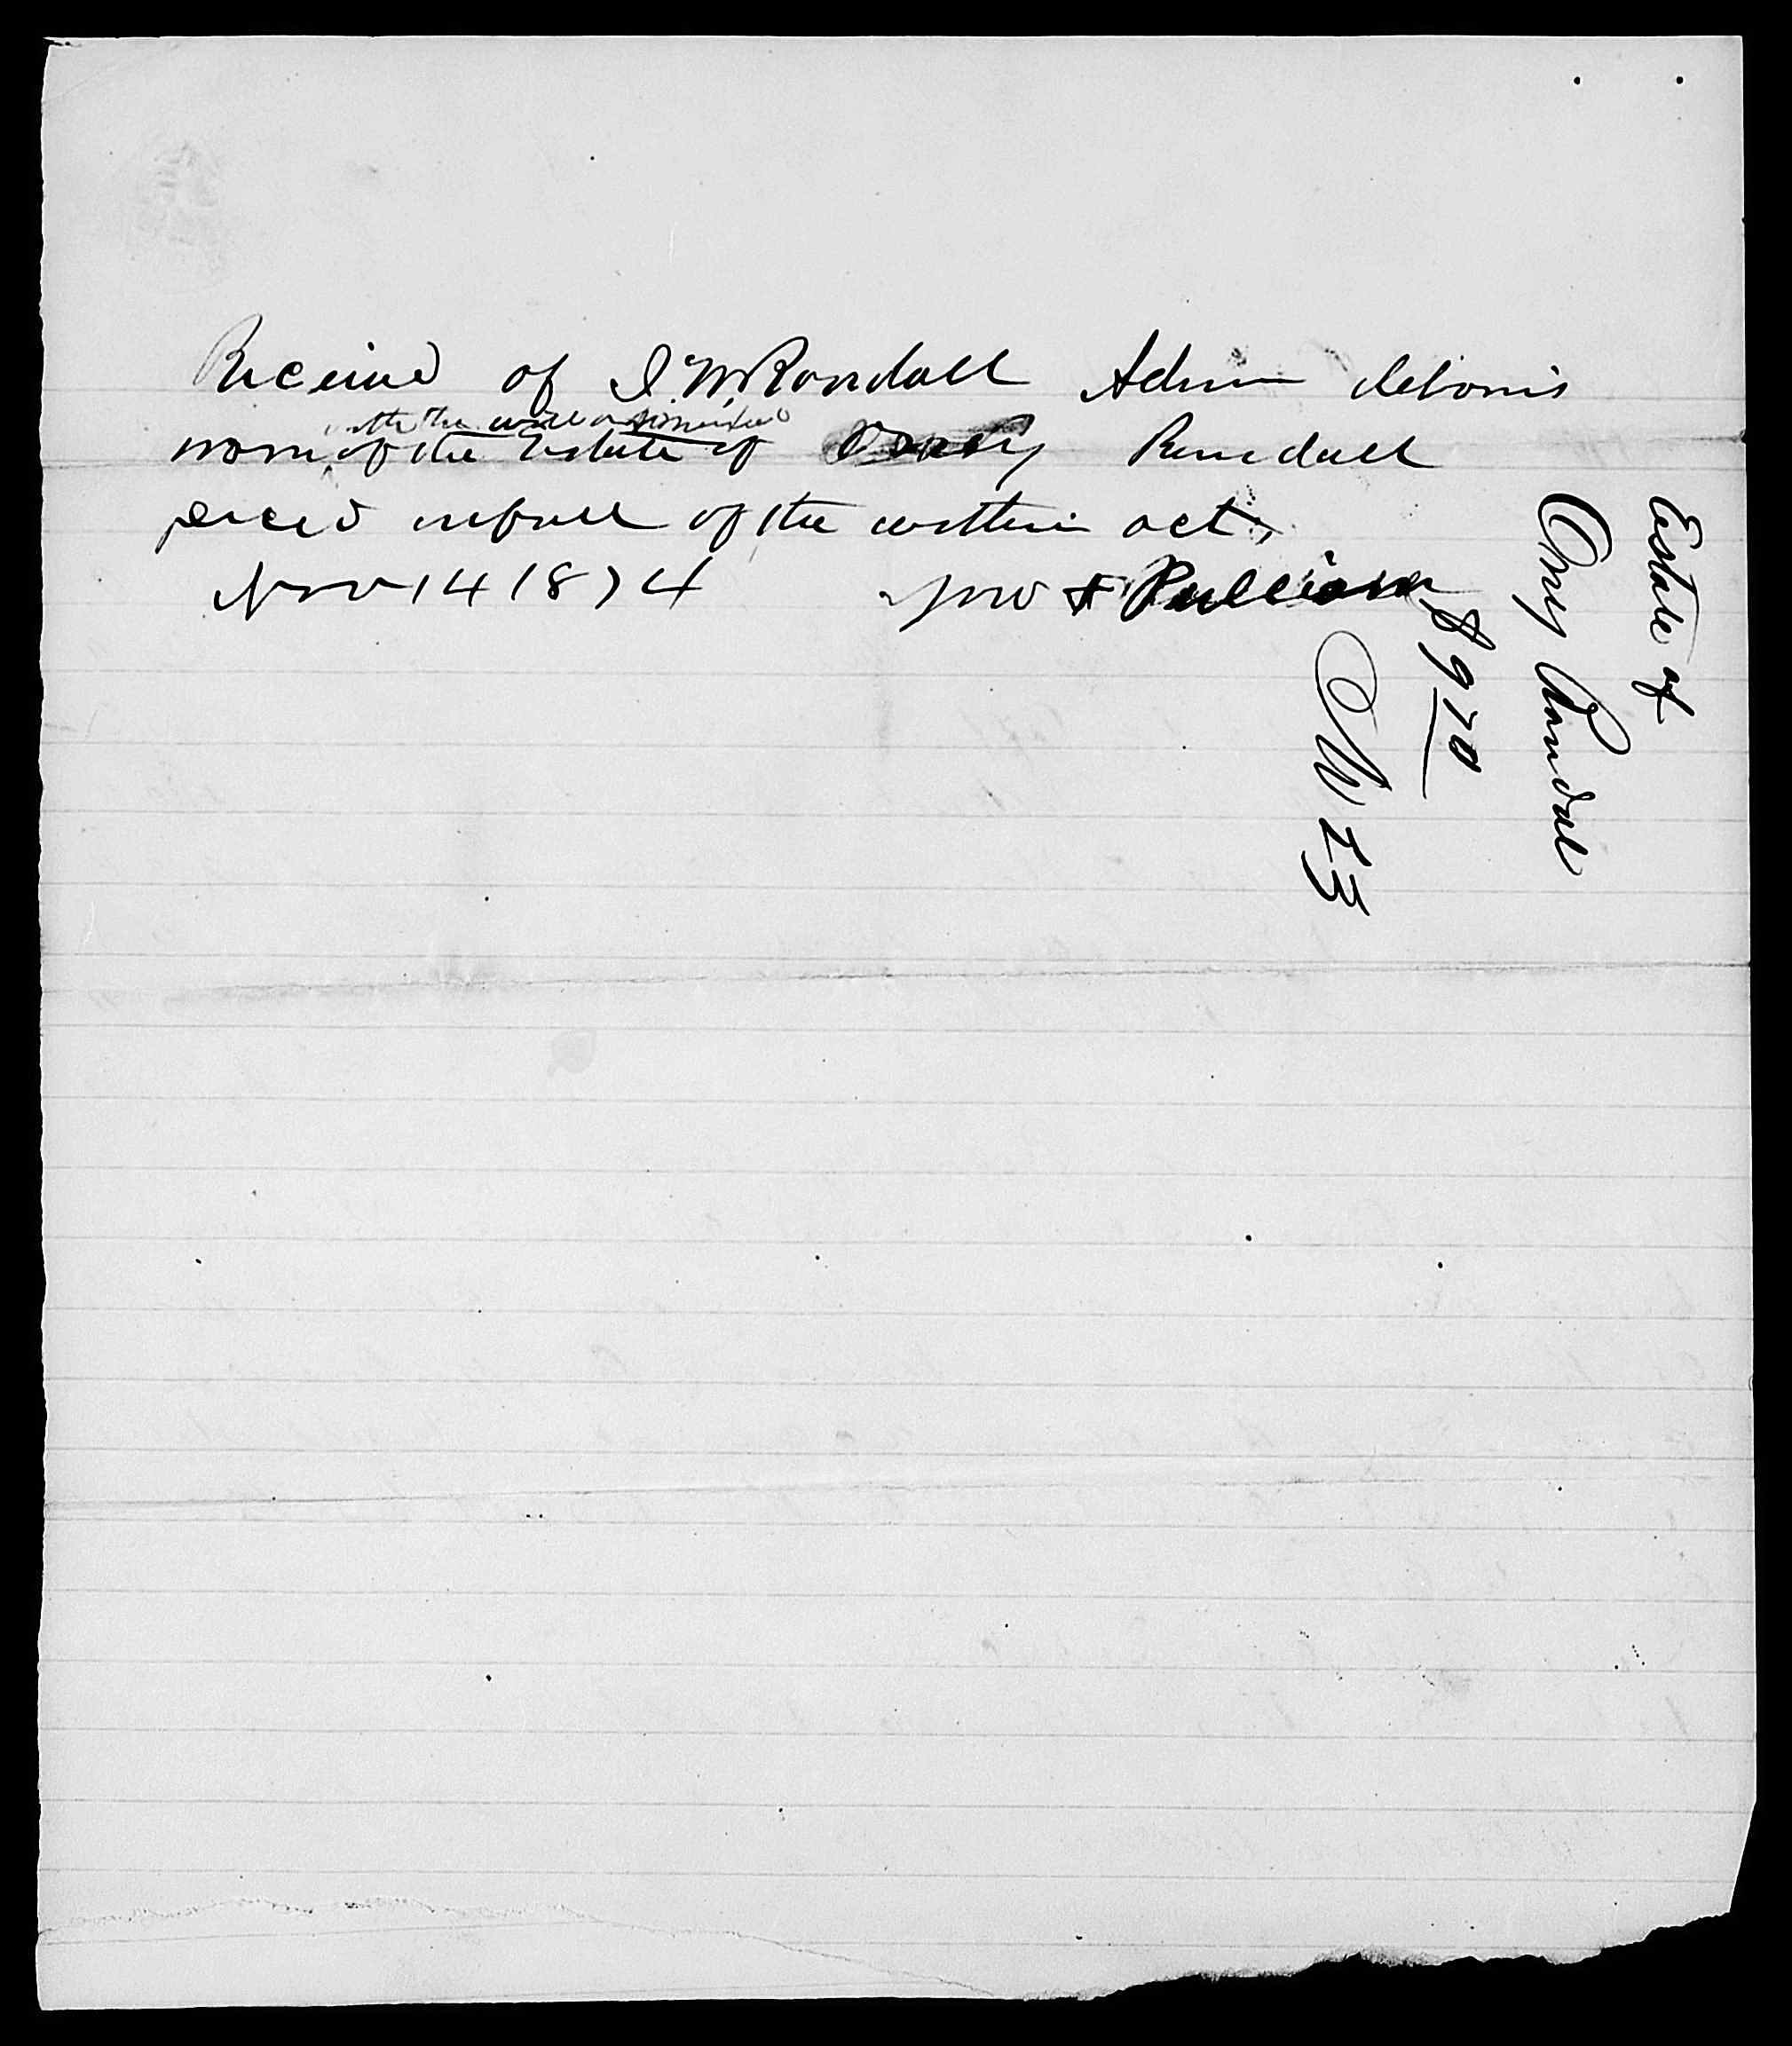 Received of J. W. Randall Admr debonis
with the will annexed
nom of the Estate of Orry Randall
decd in full of the within act,
Nov 14 1874 Jno F Pulliam
Estate of
Orry Randall
$ 9.70
No 23